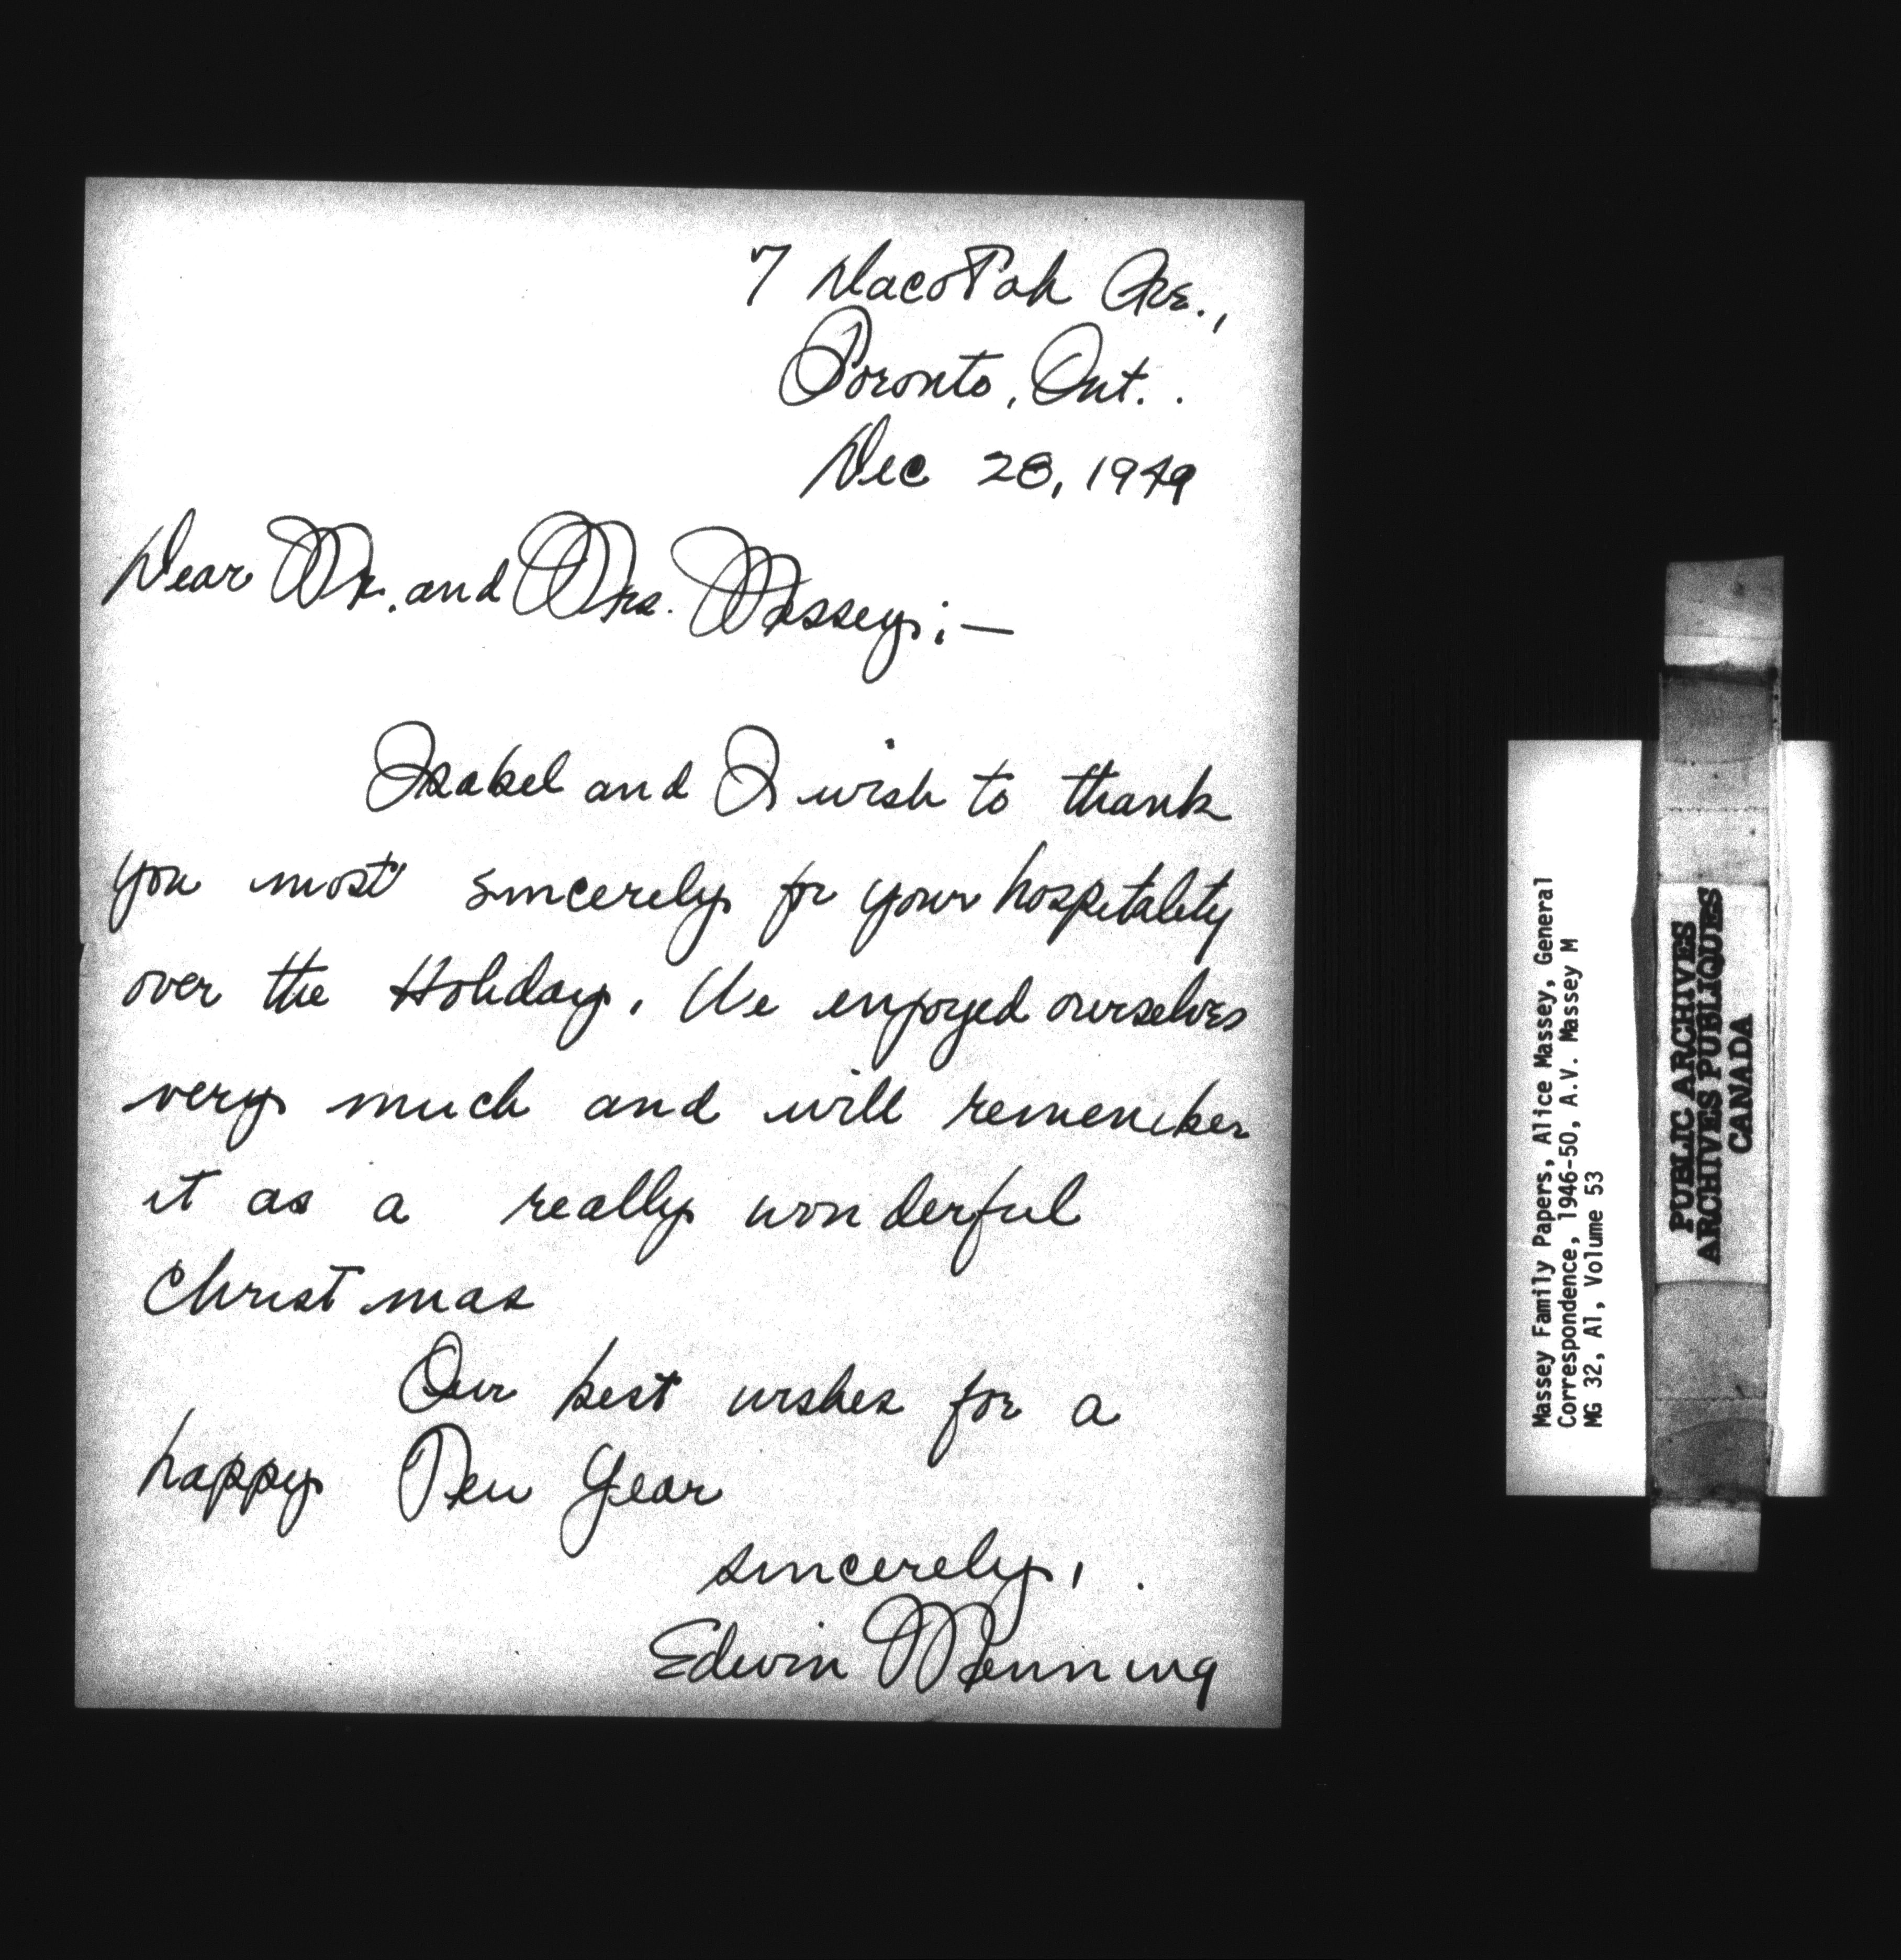 7 Dacotah Ave.,
Toronto, Ont..
Dec 28, 1949
Dear Mr. and Mrs. Massey:—
Isabel and I wish to thank
you most sincerely for your hospitality
over the Holiday. We enjoyed ourselves
very much and will remember
it as a really wonderful
Christmas
Our best wishes for a
happy New Year
sincerely,
Edwin Manning
Massey Family Papers, Alice Massey, General
Correspondence, 1946-50, A.V. Massey M
MG 32, A1, Volume 53
PUBLIC ARCHIVES
ARCHIVES PUBLIQUES
CANADA